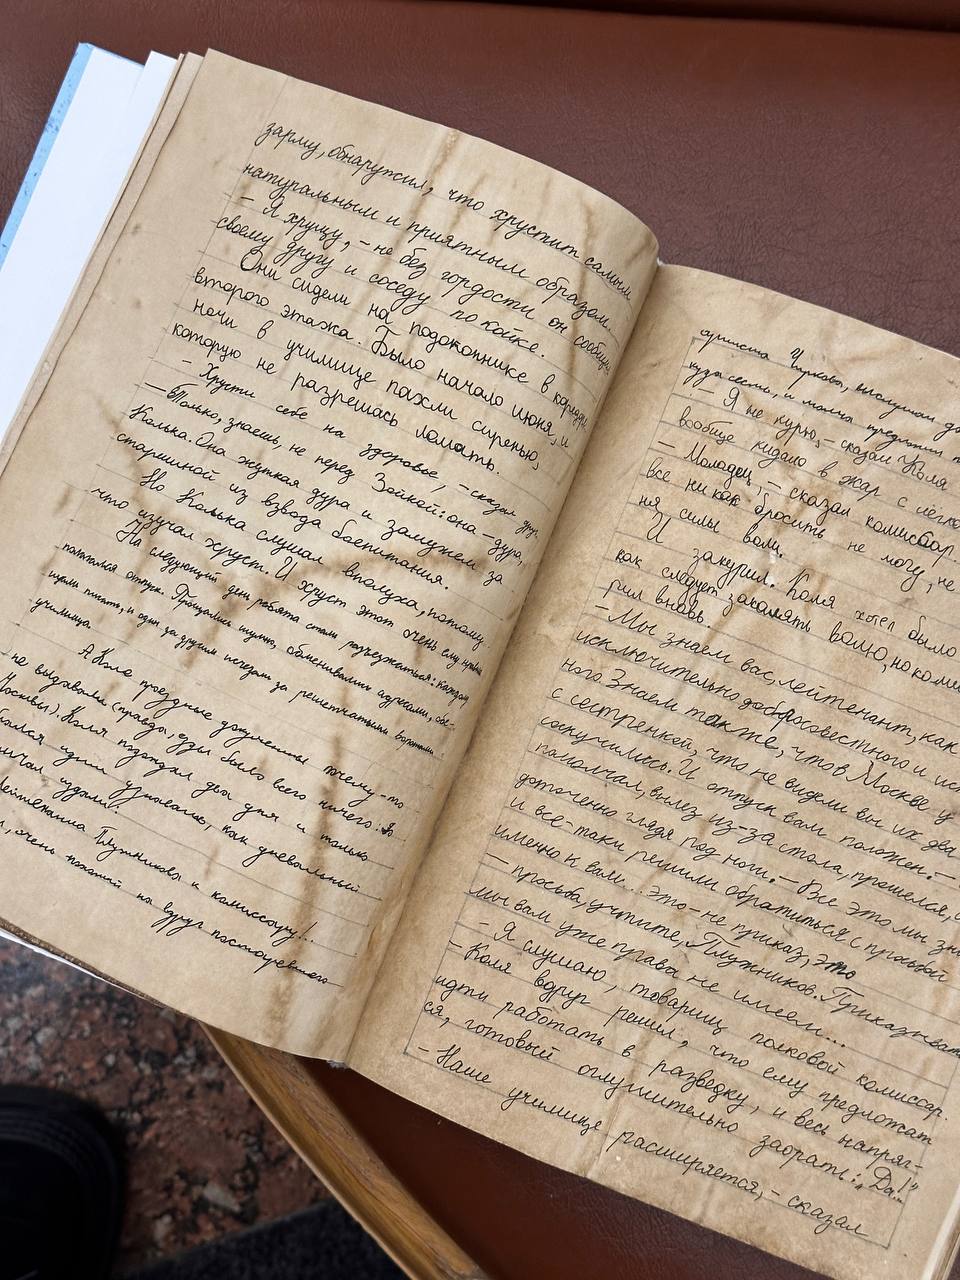 зарму, обнаружил, что хрустит самым
натуральным и приятным образом.
– Я хрущу, – не без гордости он сообщил
своему другу и соседу по койке.
Они сидели на подоконнике в коридоре
второго этажа. Было начало июня, и
ночи в училище пахли сиренью,
которую не разрешась ломать.
– Хрусти себе на здоровье, – сказал друг.
– Только, знаешь, не перед Зойкой: она – дура,
Колька. Она жуткая дура и замужем за
старшиной из взвода боепитания.
Но Колька слушал вполуха, потому
что изучал хруст. И хруст этот очень ему нравился
На следующий день ребята стали разъезжаться: каждому
полагался отпуск. Прощались шумно, обменивались адресами, обе-
щали писать, и один за другим исчезали за решетчатыми воротами
училища.
А Коле проездные документы почему-то
не выдавали (правда, езды было всего ничего: до
Москвы). Коля подождал два дня и только
идти узнавать, как дневальный
издали:
Лейтенанта Плужникова к комиссару!..
, очень похожий на вдруг постаревшего
артиста Чиркова, выслушал до
куда сесть, и молча предложил
– Я не курю, – сказал Коля
вообще кидало в жар с лёгко
– Молодец, – сказал комиссар.
все никак бросить не могу, не
ня силы воли.
И закурил. Коля хотел было
как следует закалять волю, но коми
рил вновь
– Мы знаем вас, лейтенант, как
исключительно добросовестного и исп
ного. Знаем также, что в Москве у
с сестренкой, что не видели вы их два
соскучились. И отпуск вам положен. –
помолчал, вылез из-за стола, прошелся, с
доточенно глядя под ноги. – Все это мы зн
и все-таки решили обратиться с просьбой
именно к вам... это – не приказ, это
– просьба, учтите, Плужников. Приказывать
мы вам уже права не имеем...
– Я слушаю, товарищ полковой комиссар.
– Коля вдруг решил, что ему предложат
идти работать в разведку, и весь напряг-
ся, готовый оглушительно заорать: „Да!..“
– Наше училище расширяется, – сказал